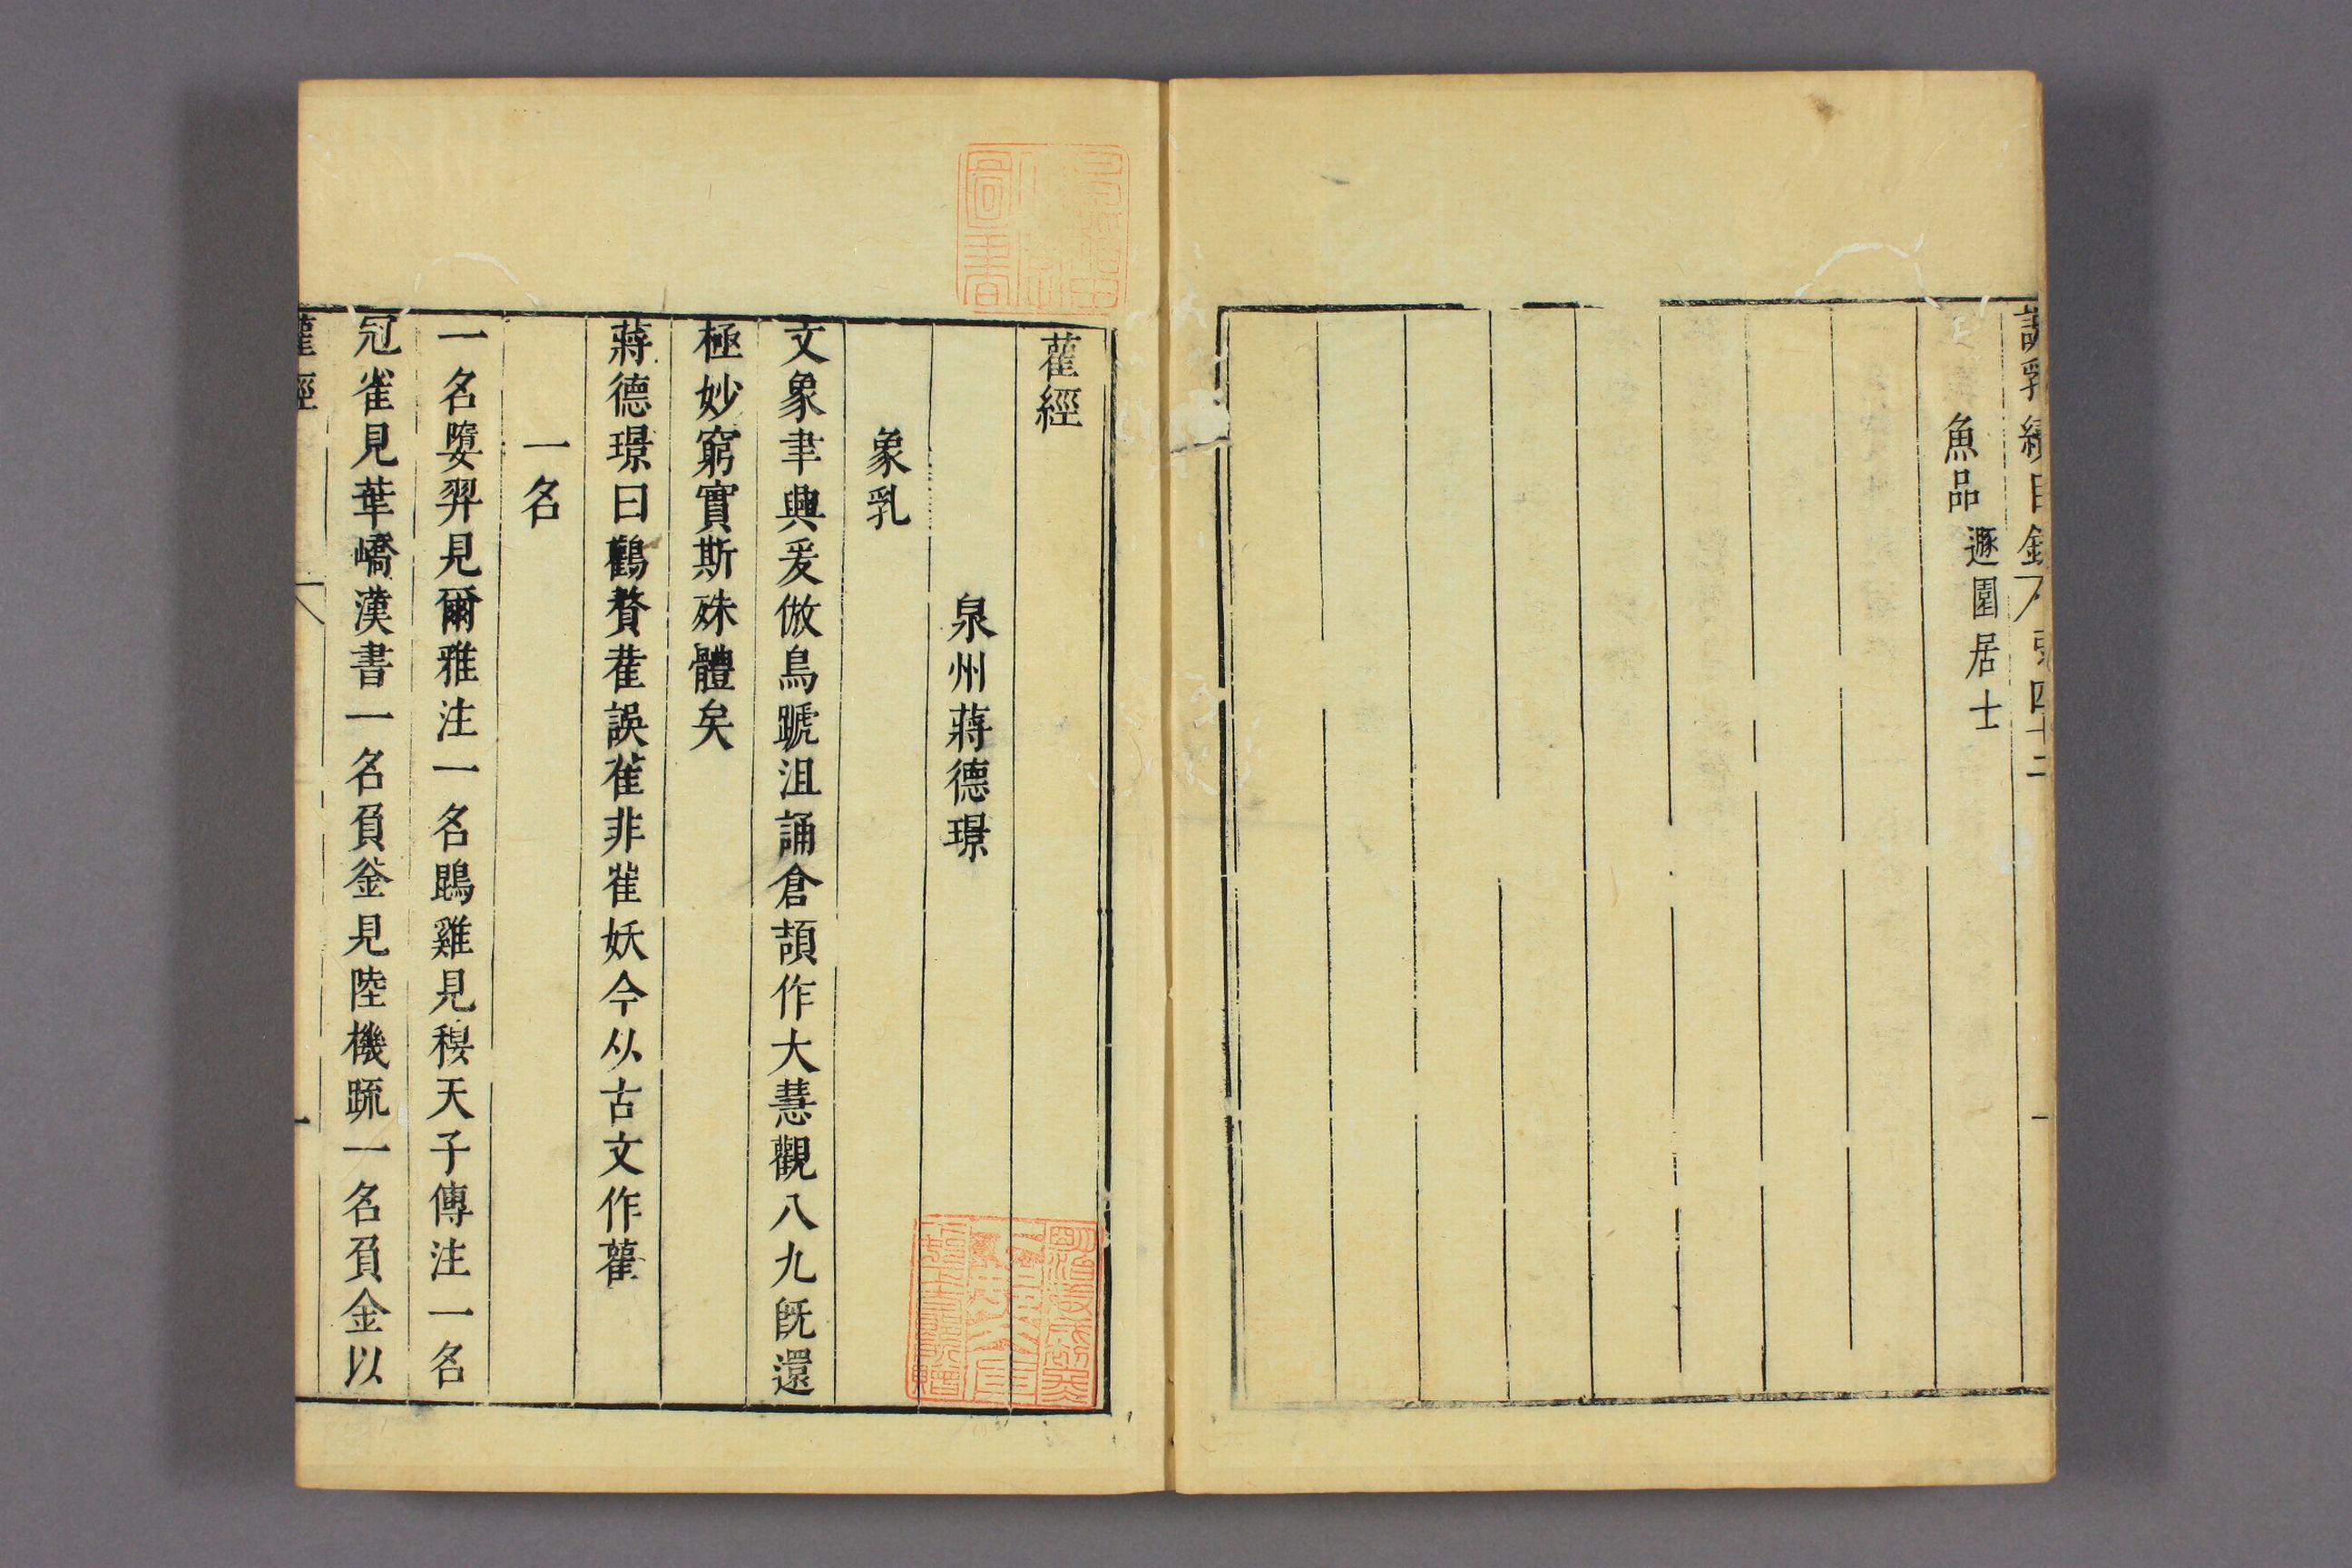 說郛續目錄 弓四十二
魚品 遯園居士
雚經
泉州蔣德璟
象乳
文象聿興爰倣鳥蹏沮誦倉頡作大慧觀八九旣還
極妙窮實斯殊體矣
蔣德璟曰鸛贅雚誤萑非雈妖今从古文作雚
一名
一名䧿羿見爾雅注一名鵾雞見穆天子傳注一名
冠雀見華嶠漢書一名負釜見陸機䟽一名負金以
雚經
一